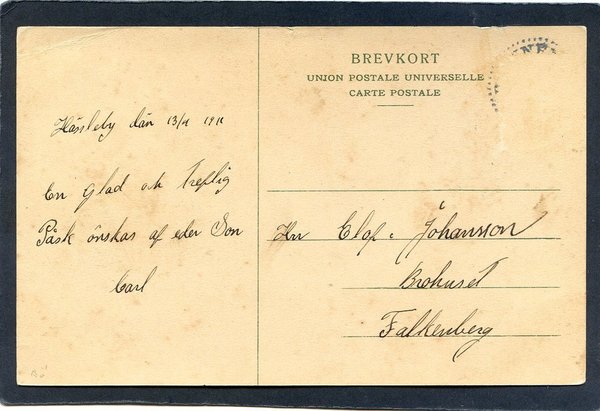 BREVKORT
UNION POSTALE UNIVERSELLE
CARTE POSTALE
Hässleby dän 13/4 1911
En Glad och Treflig
Påsk önskas af eder Son
Carl
Hr Elof Johansson
Brohuset
Falkenberg